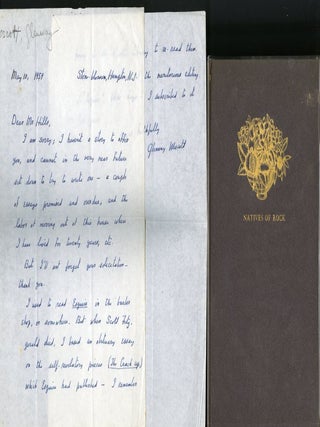 Wescott, Glenway
May 10, 1958
Stone-blossom, Hampton, N.J.
Dear Mr Hills,
I am sorry; I haven't a story to offer
you, and cannot in the very near future
set down to try to write one — a couple
of essays promised and overdue, and the
labor of moving out of this house where
I have lived for twenty years, etc.
But I'll not forget your solicitation —
thank you.
I used to read Esquire in the barber
shop, or somewhere. But when Scott Fitz-
gerald died, I based an obituary essay
on the self-revelatory pieces (The Crack-up)
which Esquire had published — I remember
to re-read them.
the
editing
I subscribed to it
Glenway Wescott
NATIVES OF ROCK